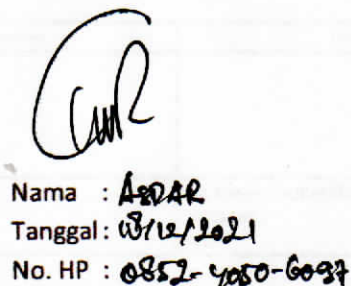 Nama : ASDAR
Tanggal : /12/2021
No. HP : 0852-4050-6097